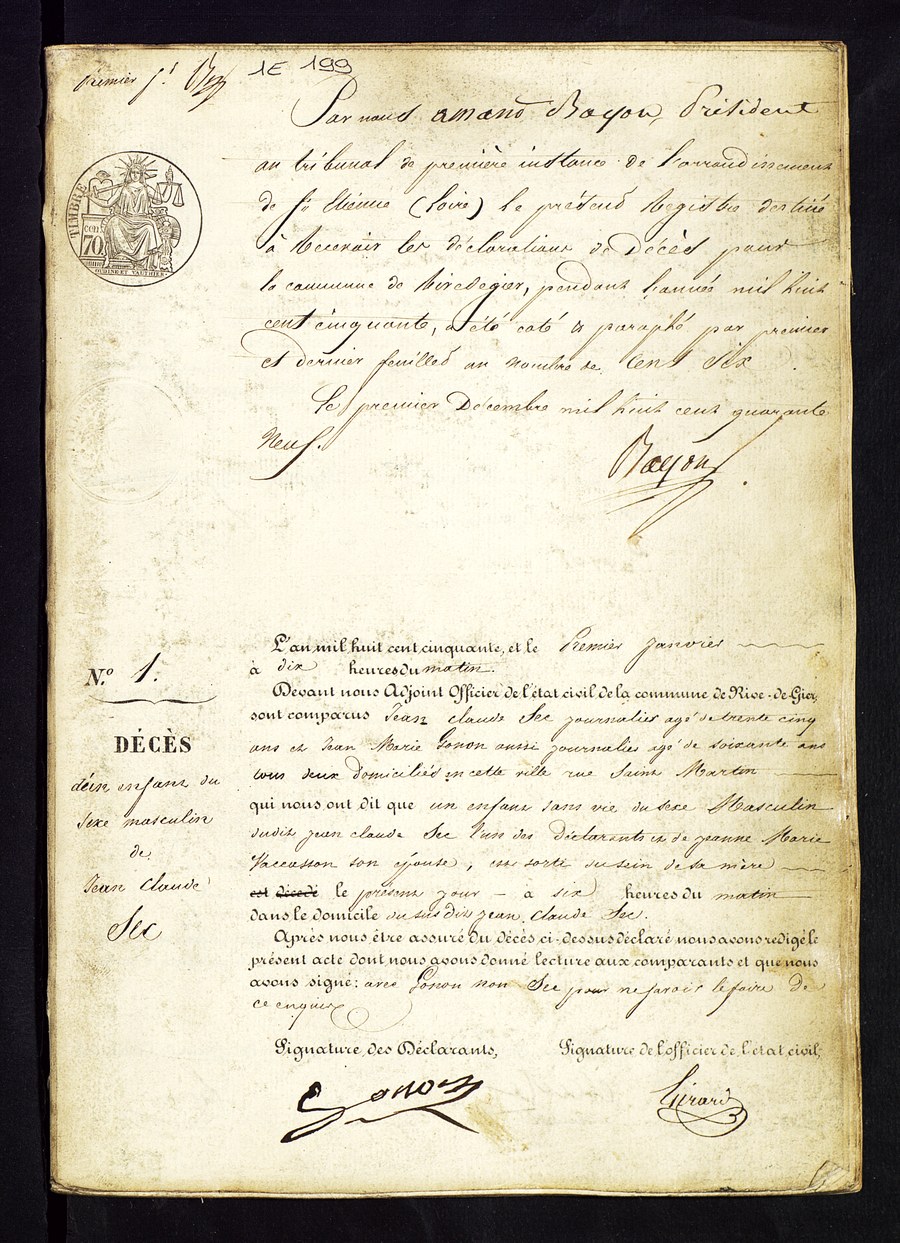 Premier ft
1E 199
Par nous amand Bayon, Président
au tribunal de première instance de l'arrondissement
de St Etienne (Loire) le présend Registre destiné
à Recevoir les déclarations de Décès pour
la commune de Rivedegier, pendant l'année mil huit
cent cinquante, a été coté & paraphé par premier
et dernier feuilled au nombre de Cent Six
Le premier Décembre mil huit cent quarante
Neuf.
Bayon
TIMBRE
CEN 70
OUDINE ET VAUTHIER
L'an mil huit cent cinquante, et le Premier Janvier
à dix heures du matin.
N.o 1.
Devant nous Adjoint Officier de l'état civil de la commune de Rive-de-Gier,
sont comparus Jean Claude Sec journalier agé de trente cinq
ans et Jean Marie Gonon aussi journalier agé de soixante ans
tous deux domiciliés en cette ville rue Saint Martin
qui nous ont dit que un enfant sans vie du sexe Masculin
dudit jean claude Sec l'un des déclarants et de jeanne Marie
Vaccasson son épouse, est sorti du sein de sa mère
est décédé le présent jour - à six heures du matin
dans le domicile du sus dit jean Claude Sec.
DÉCÈS
d'ein enfant du
Sexe masculin
de
Jean Claude
Sec
Après nous être assuré du décès ci-dessus déclaré nous avons rédigé le
présent acte dont nous avons donné lecture aux comparants et que nous
avons signé: avec Gonon non Sec pour ne savoir le faire de
ce enquis
Signature des Déclarants,
Signature de l'officier de l'état civil,
Gonon
Girard